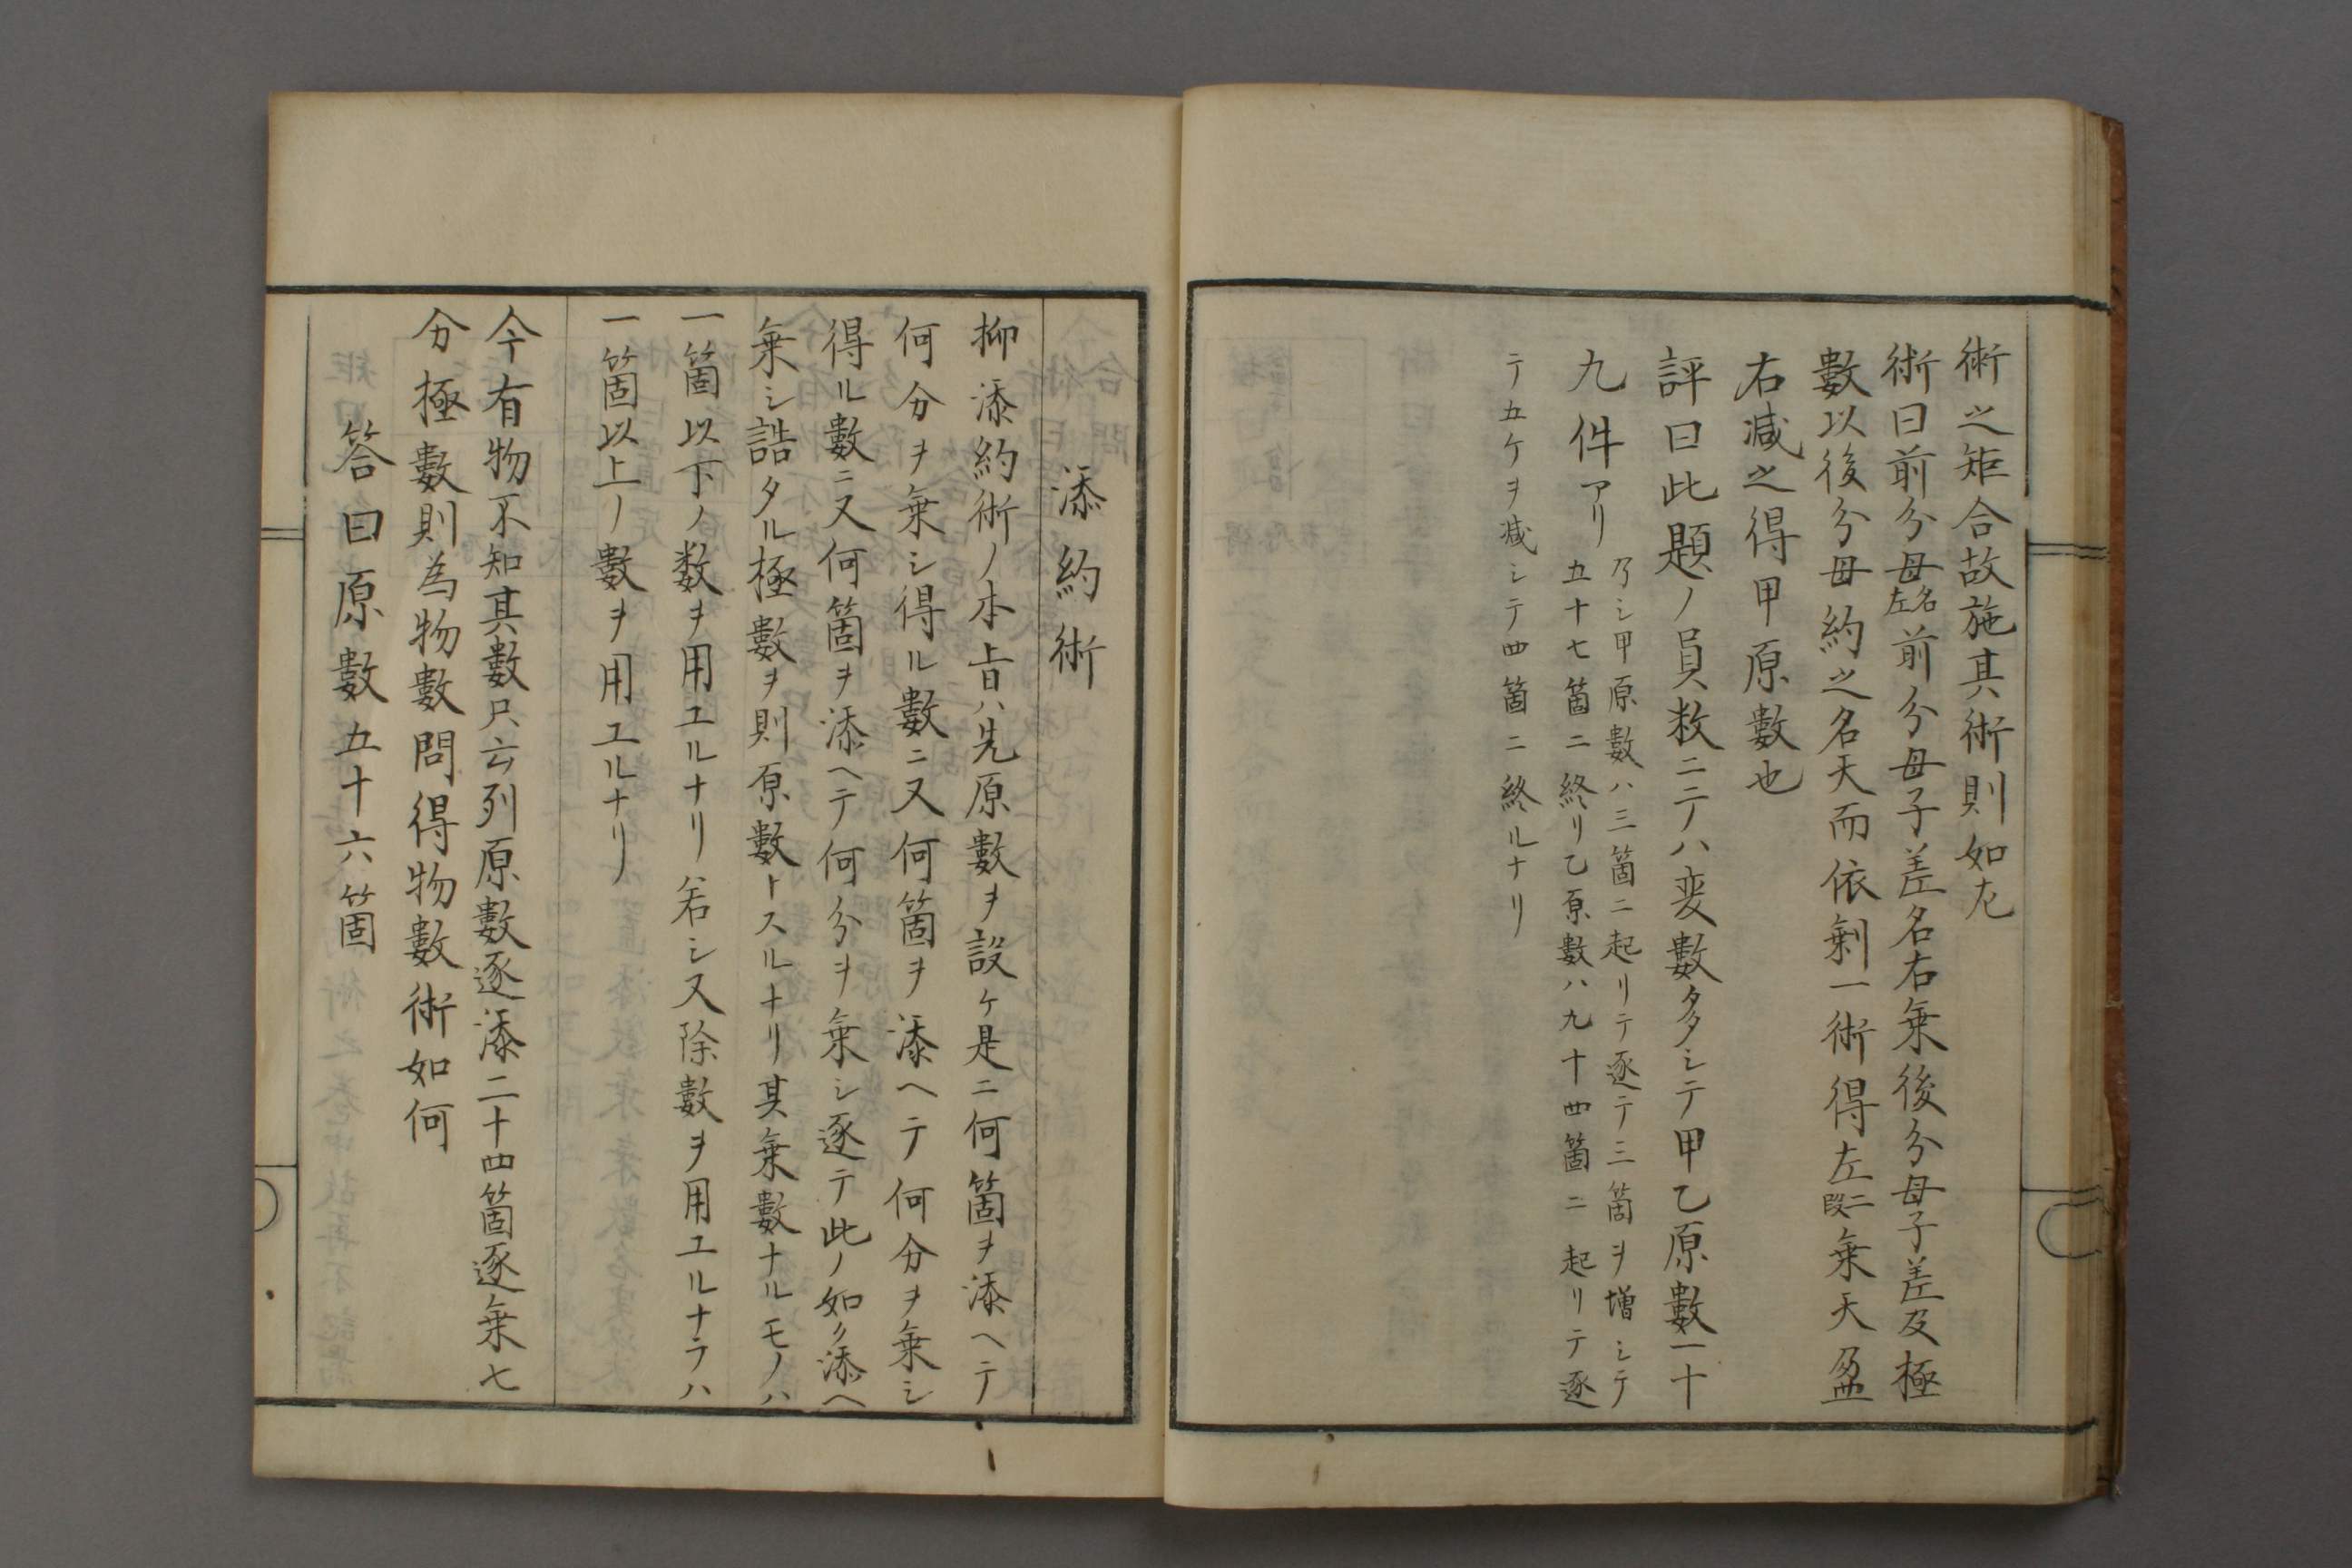 術之矩合故施其術則如左
術曰前分母名左前分母子差名右乗後分母子差及極
數以後分母約之名天而依剰一術得左段二乗天盈
右減之得甲原數也
評曰此題ノ員数ニテハ変數多クシテ甲乙原數一十
九件アリ
乃シ甲原數ハ三箇ニ起リテ逐テ三箇ヲ増シテ
五十七箇ニ終リ乙原數ハ九十四箇ニ起リテ逐
テ五ケヲ減シテ四箇ニ終ルナリ
添約術
抑添約術ノ本旨ハ先原數ヲ設ケ是ニ何箇ヲ添ヘテ
何分ヲ乗シ得ル數ニ又何箇ヲ添ヘテ何分ヲ乗シ
得ル數ニ又何箇ヲ添ヘテ何分ヲ乗シ逐テ此ノ如ク添ヘ
乗シ詰タル極數ヲ則原數トスルナリ其乗數ナルモノハ
一箇以下ノ数ヲ用ユルナリ若シ又除數ヲ用ユルナラハ
一箇以上ノ數ヲ用ユルナリ
今有物不知其數只云列原數逐添二十四箇逐乗七
分極數則為物數問得物數術如何
答曰原數五十六箇